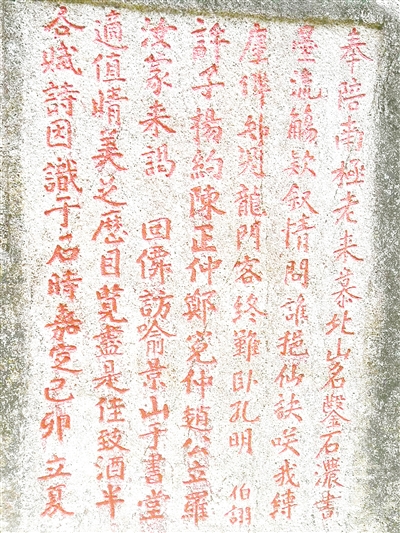 奉陪南極老来慕北山名鑿石濃書
墨流觴款叙情問誰挹仙訣咲我縛
塵纓始覺龍門客終難卧孔明 伯詡
許子揚約陳正仲鄭寛仲趙公立羅
汝家来謁 回儛訪喻景山于書堂
適值晴美芝歷目覽盡是佳致酒半
各賦詩因識于石時嘉定己卯立夏